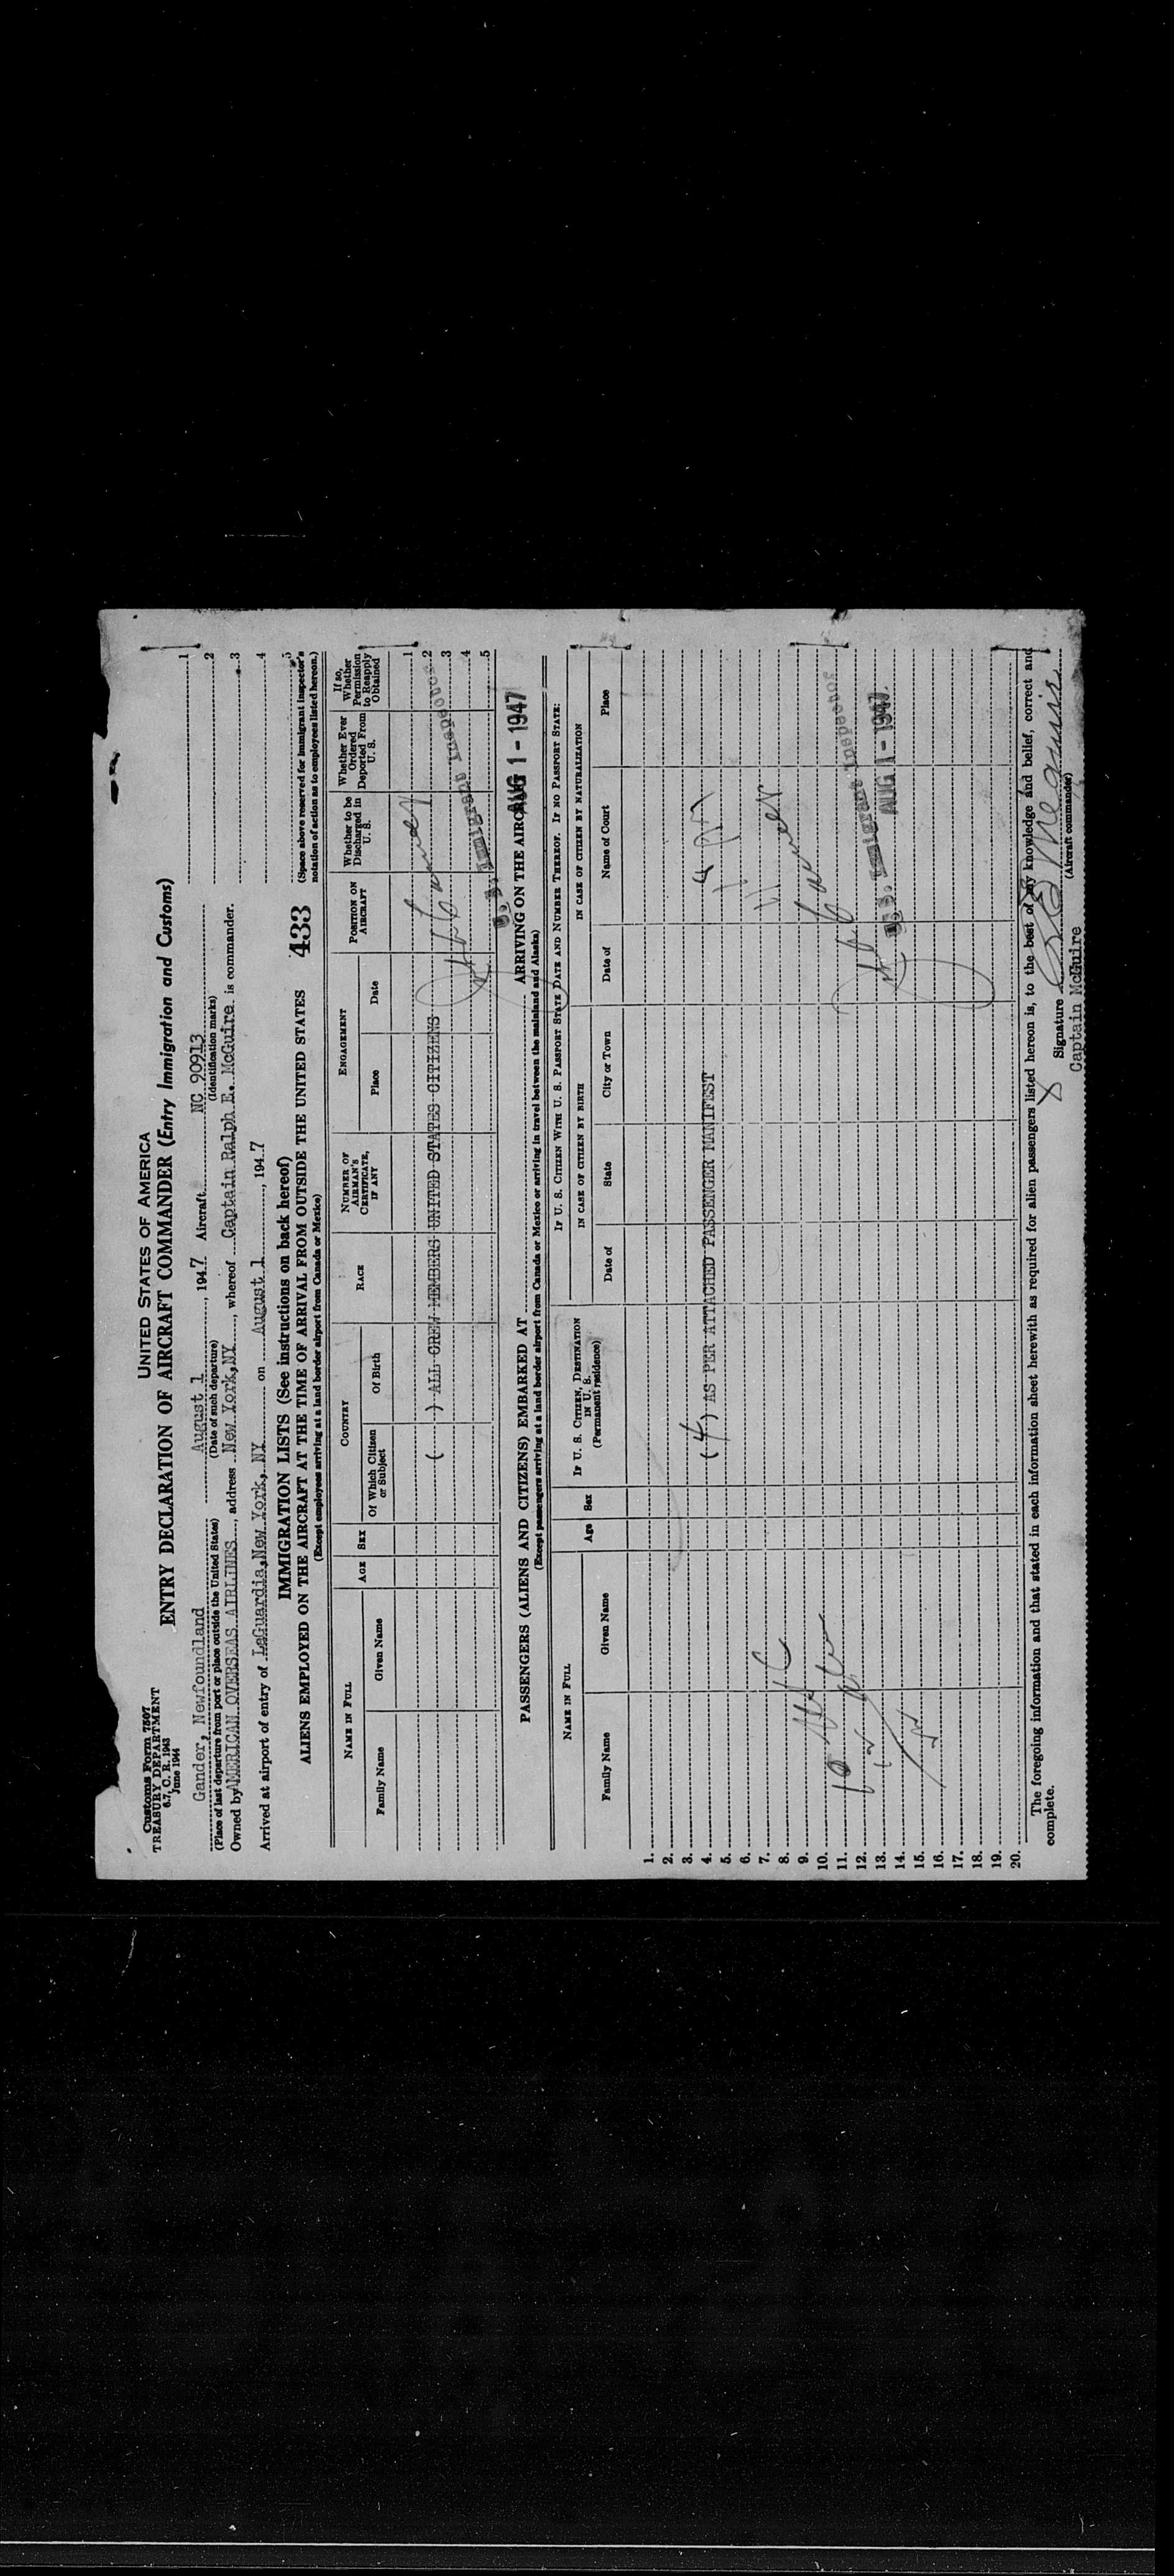 Customs Form 7507
TREASURY DEPARTMENT
6.7, C. R. 1943
June 1944
UNITED STATES OF AMERICA
ENTRY DECLARATION OF AIRCRAFT COMMANDER (Entry Immigration and Customs)
Gander, Newfoundland August 1, 1947 Aircraft NC 90913
(Place of last departure from port or place outside the United States) (Date of such departure) (Identification marks)
Owned by AMERICAN OVERSEAS AIRLINES address New York, NY, whereof Captain Ralph E. McGuire is commander.
Arrived at airport of entry of LaGuardia, New York, NY on August 1, 1947
1
2
3
4
5
(Space above reserved for immigrant inspector's notation of action as to employees listed hereon.)
IMMIGRATION LISTS (See instructions on back hereof)
433
ALIENS EMPLOYED ON THE AIRCRAFT AT THE TIME OF ARRIVAL FROM OUTSIDE THE UNITED STATES
(Except employees arriving at a land border airport from Canada or Mexico)
NAME IN FULL
Family Name Given Name
AGE SEX
COUNTRY
Of Which Citizen or Subject Of Birth
RACE
NUMBER OF AIRMAN'S CERTIFICATE, IF ANY
ENGAGEMENT
Place Date
POSITION ON AIRCRAFT
Whether to be Discharged in U. S.
Whether Ever Ordered Deported From U. S.
If so, Whether Permission to Reapply Obtained
1
( ) ALL CREW MEMBERS UNITED STATES CITIZENS 2
3
4
5
U. S. Immigrant Inspector
AUG 1 - 1947
PASSENGERS (ALIENS AND CITIZENS) EMBARKED AT ARRIVING ON THE AIRCRAFT
(Except passengers arriving at a land border airport from Canada or Mexico or arriving in travel between the mainland and Alaska)
NAME IN FULL
Family Name Given Name
Age Sex
IF U. S. CITIZEN, DESTINATION IN U. S. (Permanent residence)
IF U. S. CITIZEN WITH U. S. PASSPORT STATE DATE AND NUMBER THEREOF. IF NO PASSPORT STATE:
IN CASE OF CITIZEN BY BIRTH
Date of State City or Town
IN CASE OF CITIZEN BY NATURALIZATION
Date of Name of Court Place
1.
2.
3.
4. (4) AS PER ATTACHED PASSENGER MANIFEST
5.
6.
7.
8.
9.
10.
11.
12.
13.
14.
15.
16.
17.
18.
19.
20.
U. S. Immigrant Inspector
AUG 1 - 1947
The foregoing information and that stated in each information sheet herewith as required for alien passengers listed hereon is, to the best of my knowledge and belief, correct and
complete.
Signature R E McGuire
(Aircraft commander)
Captain McGuire